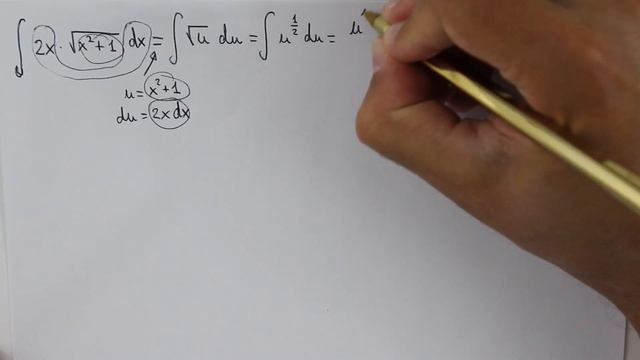 ∫ 2x · √(x²+1) dx = ∫ √u du = ∫ u^(1/2) du = u
u = x²+1
du = 2x dx